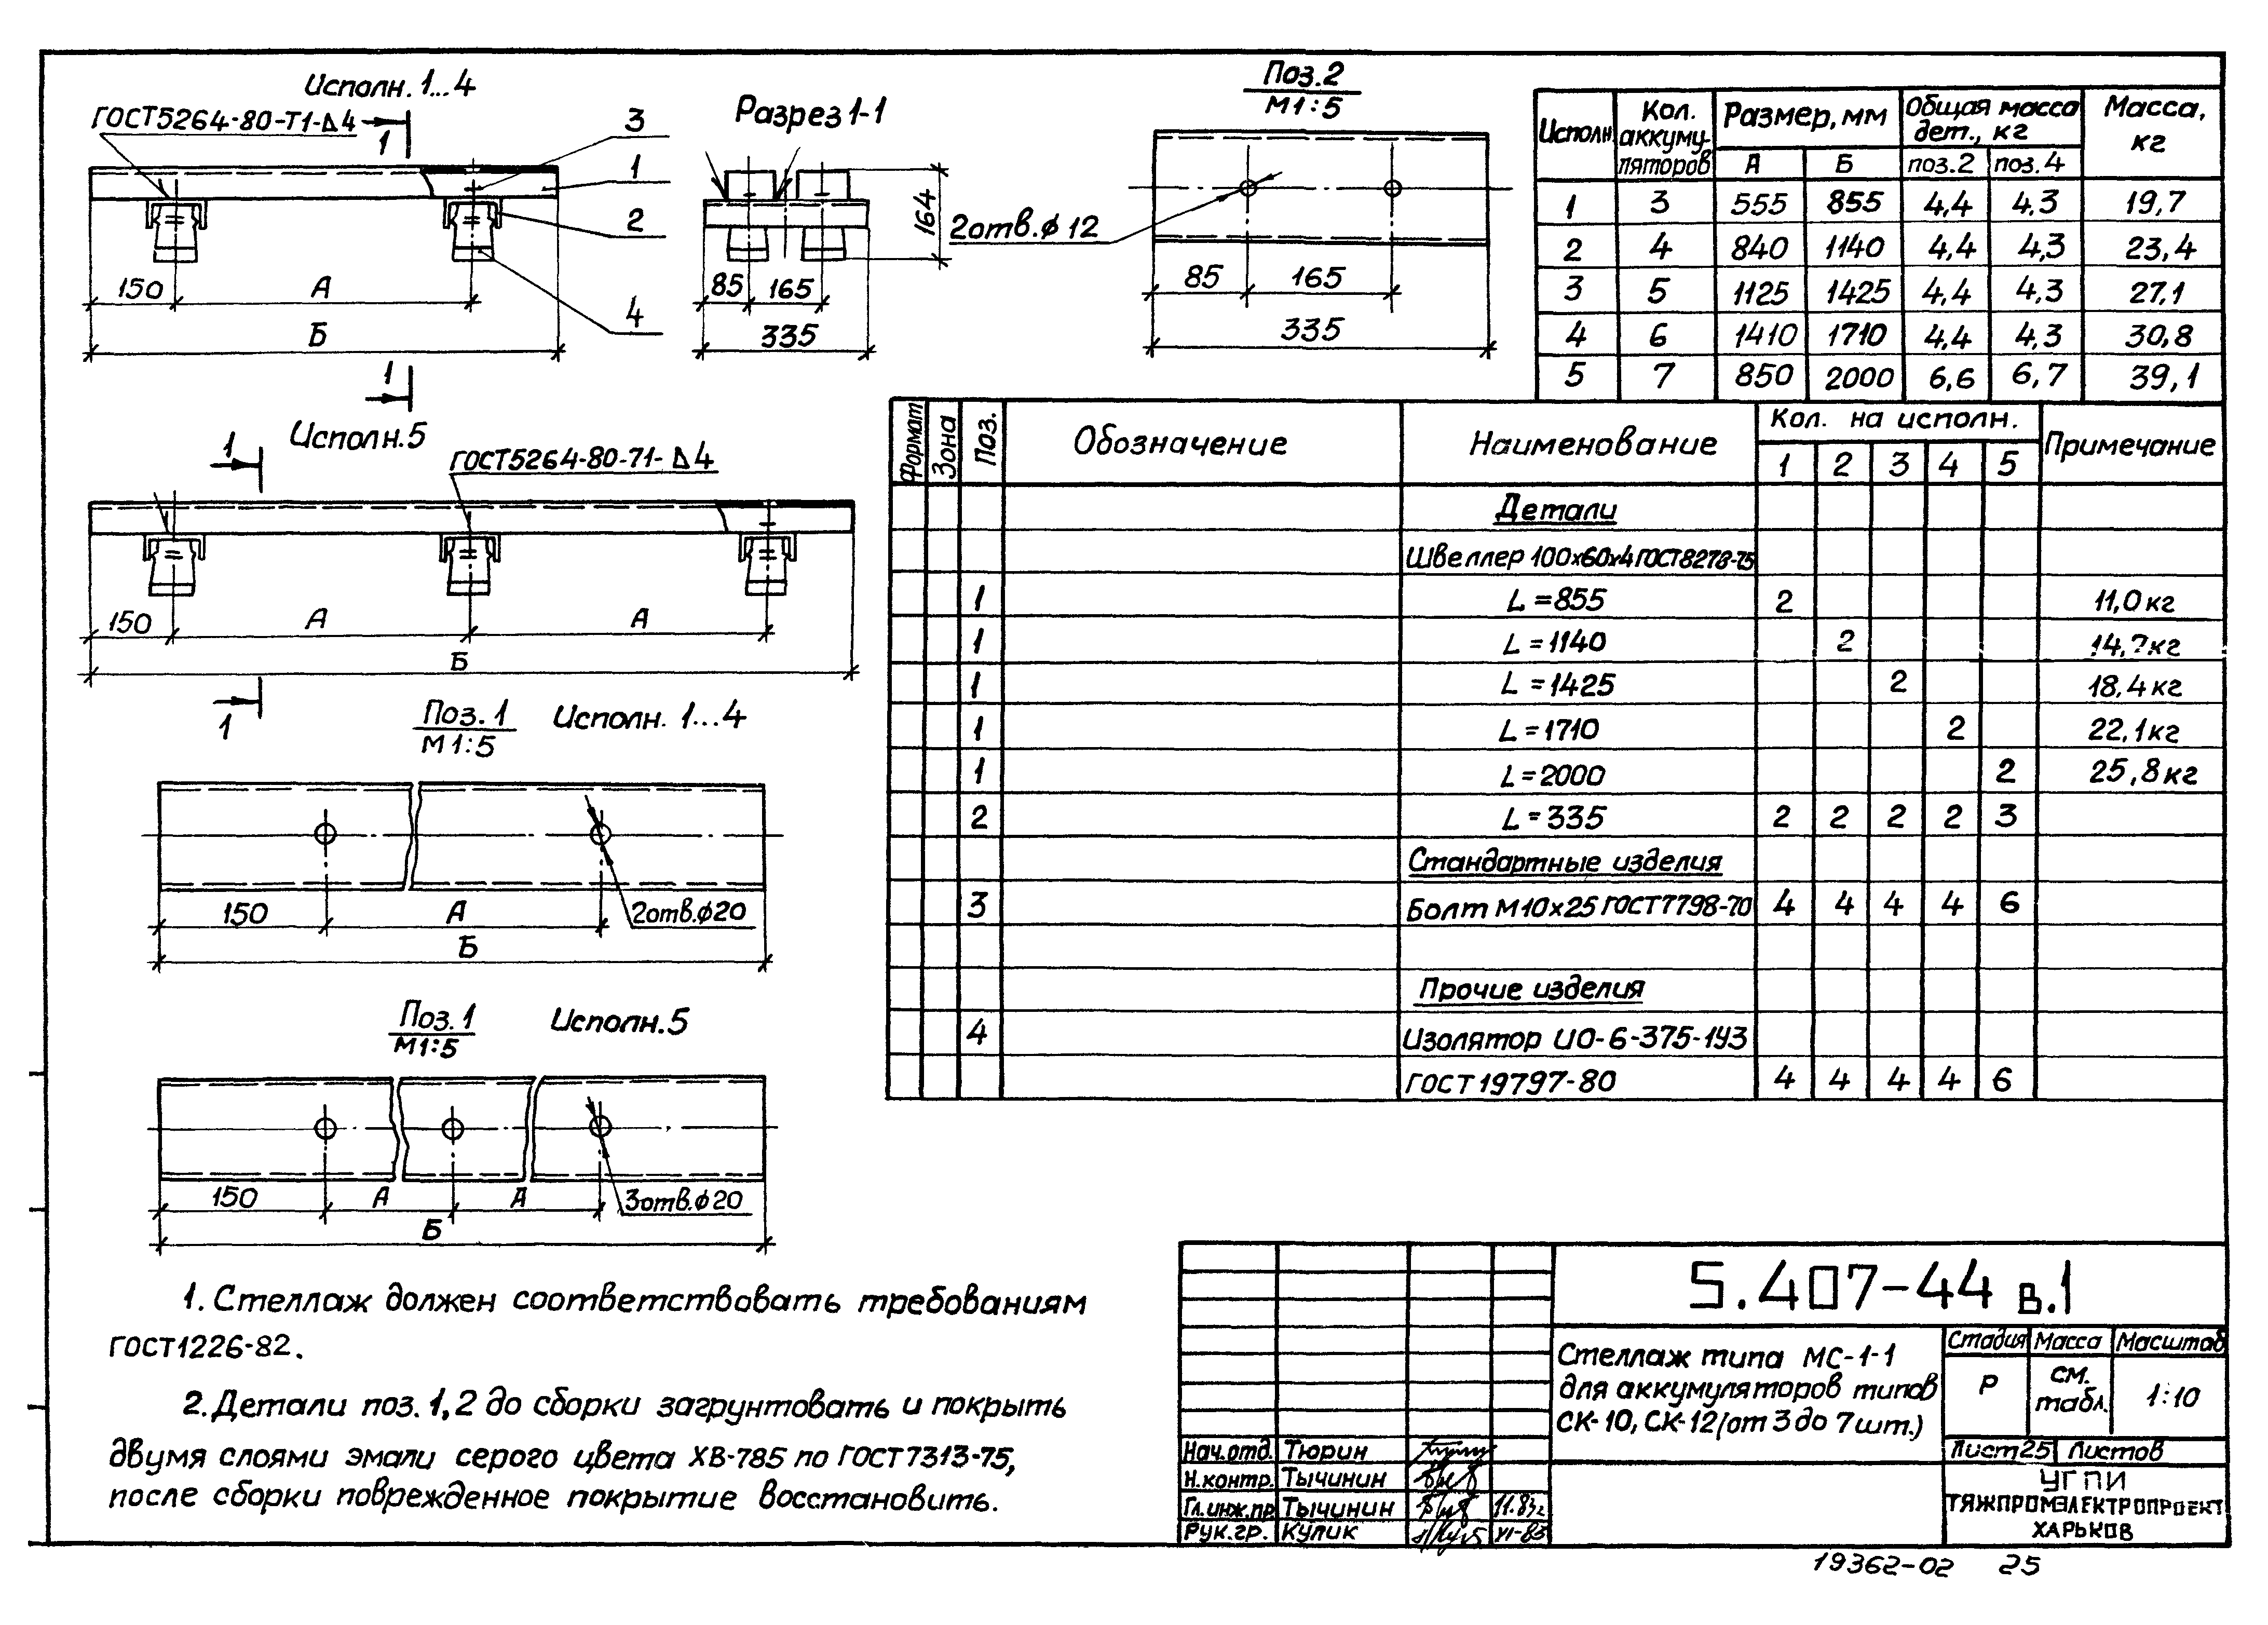 Исполн. 1...4
ГОСТ5264-80-Т1-Δ4
1
3
1
2
4
150
А
Б
1
Разрез 1-1
164
85
165
335
Поз.2
М1:5
2отв.ϕ12
85
165
335
Исполн.
Кол. аккуму-ляторов
Размер, мм
Общая масса дет., кг
Масса, кг
А
Б
поз.2
поз.4
1 3 555 855 4,4 4,3 19,7
2 4 840 1140 4,4 4,3 23,4
3 5 1125 1425 4,4 4,3 27,1
4 6 1410 1710 4,4 4,3 30,8
5 7 850 2000 6,6 6,7 39,1
Исполн.5
1
ГОСТ5264-80-71-Δ4
150
А
А
Б
1
Поз.1
М1:5
Исполн. 1...4
150
А
2отв.ϕ20
Б
Поз.1
М1:5
Исполн.5
150
А
А
3отв.ϕ20
Б
Формат
Зона
Поз.
Обозначение
Наименование
Кол. на исполн.
Примечание
1 2 3 4 5
Детали
Швеллер 100х60х4 ГОСТ8278-75
1 L=855 2 11,0кг
1 L=1140 2 14,7кг
1 L=1425 2 18,4кг
1 L=1710 2 22,1кг
1 L=2000 2 25,8кг
2 L=335 2 2 2 2 3
Стандартные изделия
3 Болт М10х25 ГОСТ7798-70 4 4 4 4 6
Прочие изделия
4 Изолятор ИО-6-375-1У3
ГОСТ19797-80 4 4 4 4 6
1. Стеллаж должен соответствовать требованиям
ГОСТ1226-82.
2. Детали поз.1,2 до сборки загрунтовать и покрыть
двумя слоями эмали серого цвета ХВ-785 по ГОСТ7313-75,
после сборки поврежденное покрытие восстановить.
5.407-44 в.1
Стеллаж типа МС-1-1
для аккумуляторов типов
СК-10, СК-12(от 3 до 7шт.)
Стадия Масса Масштаб
Р см. табл. 1:10
Лист25 Листов
УГПИ
ТЯЖПРОМЭЛЕКТРОПРОЕКТ
ХАРЬКОВ
Нач.отд. Тюрин
Н.контр. Тычинин
Гл.инж.пр. Тычинин 11.83г
Рук.гр. Кулик XI-83
19362-02 25